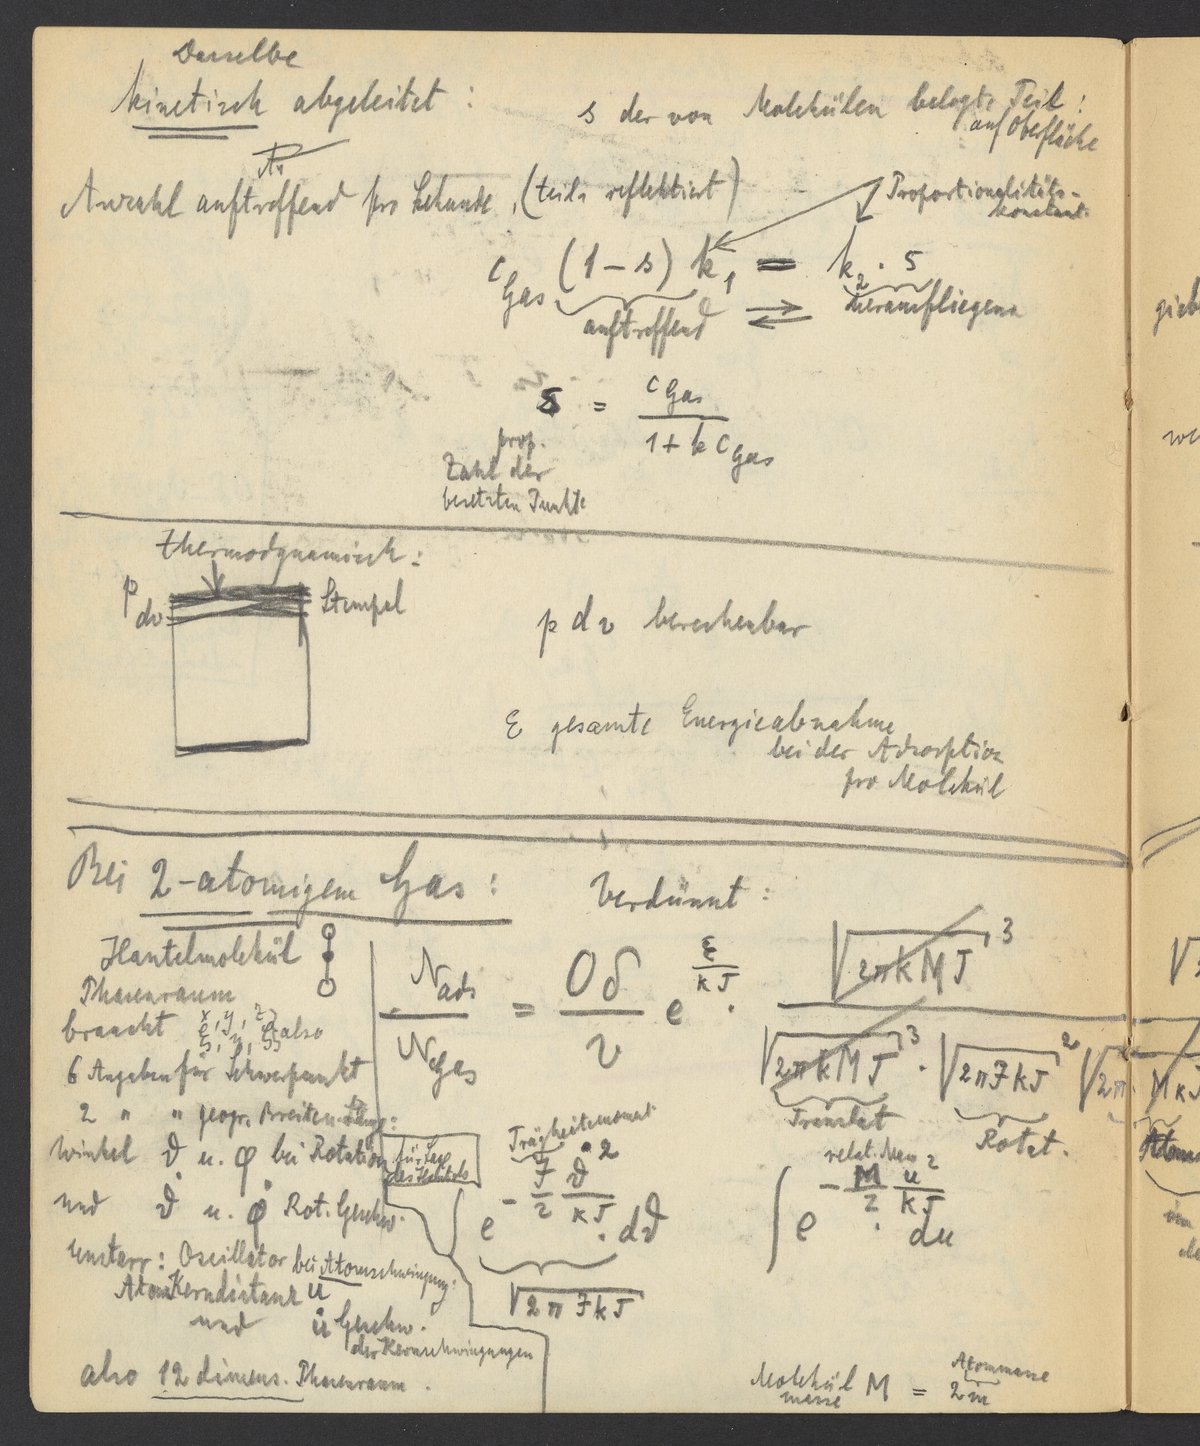 Dasselbe
kinetisch abgeleitet :
s der von Molekülen belegte Teil :
auf Oberfläche
Anzahl auftreffend pro Sekunde, (teils reflektiert)
Proportionalitäts-
konstant.
c Gas (1 − s) k₁ = k₂ · s
auftreffend ⇌ herausfliegend
s = c Gas / 1 + k c Gas
prop.
Zahl der
besetzten Punkte
thermodynamisch :
p
dv
Stempel
p dv berechenbar
ε gesamte Energieabnahme
bei der Adsorption
pro Molekül
Bei 2-atomigem Gas :
Verdünnt :
Hantelmolekül
Phasenraum
braucht x, y, z, ẋ, ẏ, ż also
6 Angaben für Schwerpunkt
2 " " geogr. Breiten-Länge:
winkel ϑ u. φ bei Rotation
und ϑ̇ u. φ̇ Rot. Geschw.
unstarr : Oscillator bei Atomschwingung:
Atom Kerndistanz u
und u̇ Geschw.
der Kernschwingungen
also 12 dimens. Phasenraum.
N ads / N Gas = O δ / v e^(ε / kT) · √2πkMT³ / √2πkMT³ · √2πJkT² √2π MkT
Translat
Rotat.
Trägheitsmoment
∫ e^(− J/2 ϑ̇²/kT) · dϑ̇
√2πJkT
relat. Mass
∫ e^(− M/2 u²/kT) · du
Molekül
masse M = 2m
Atommasse